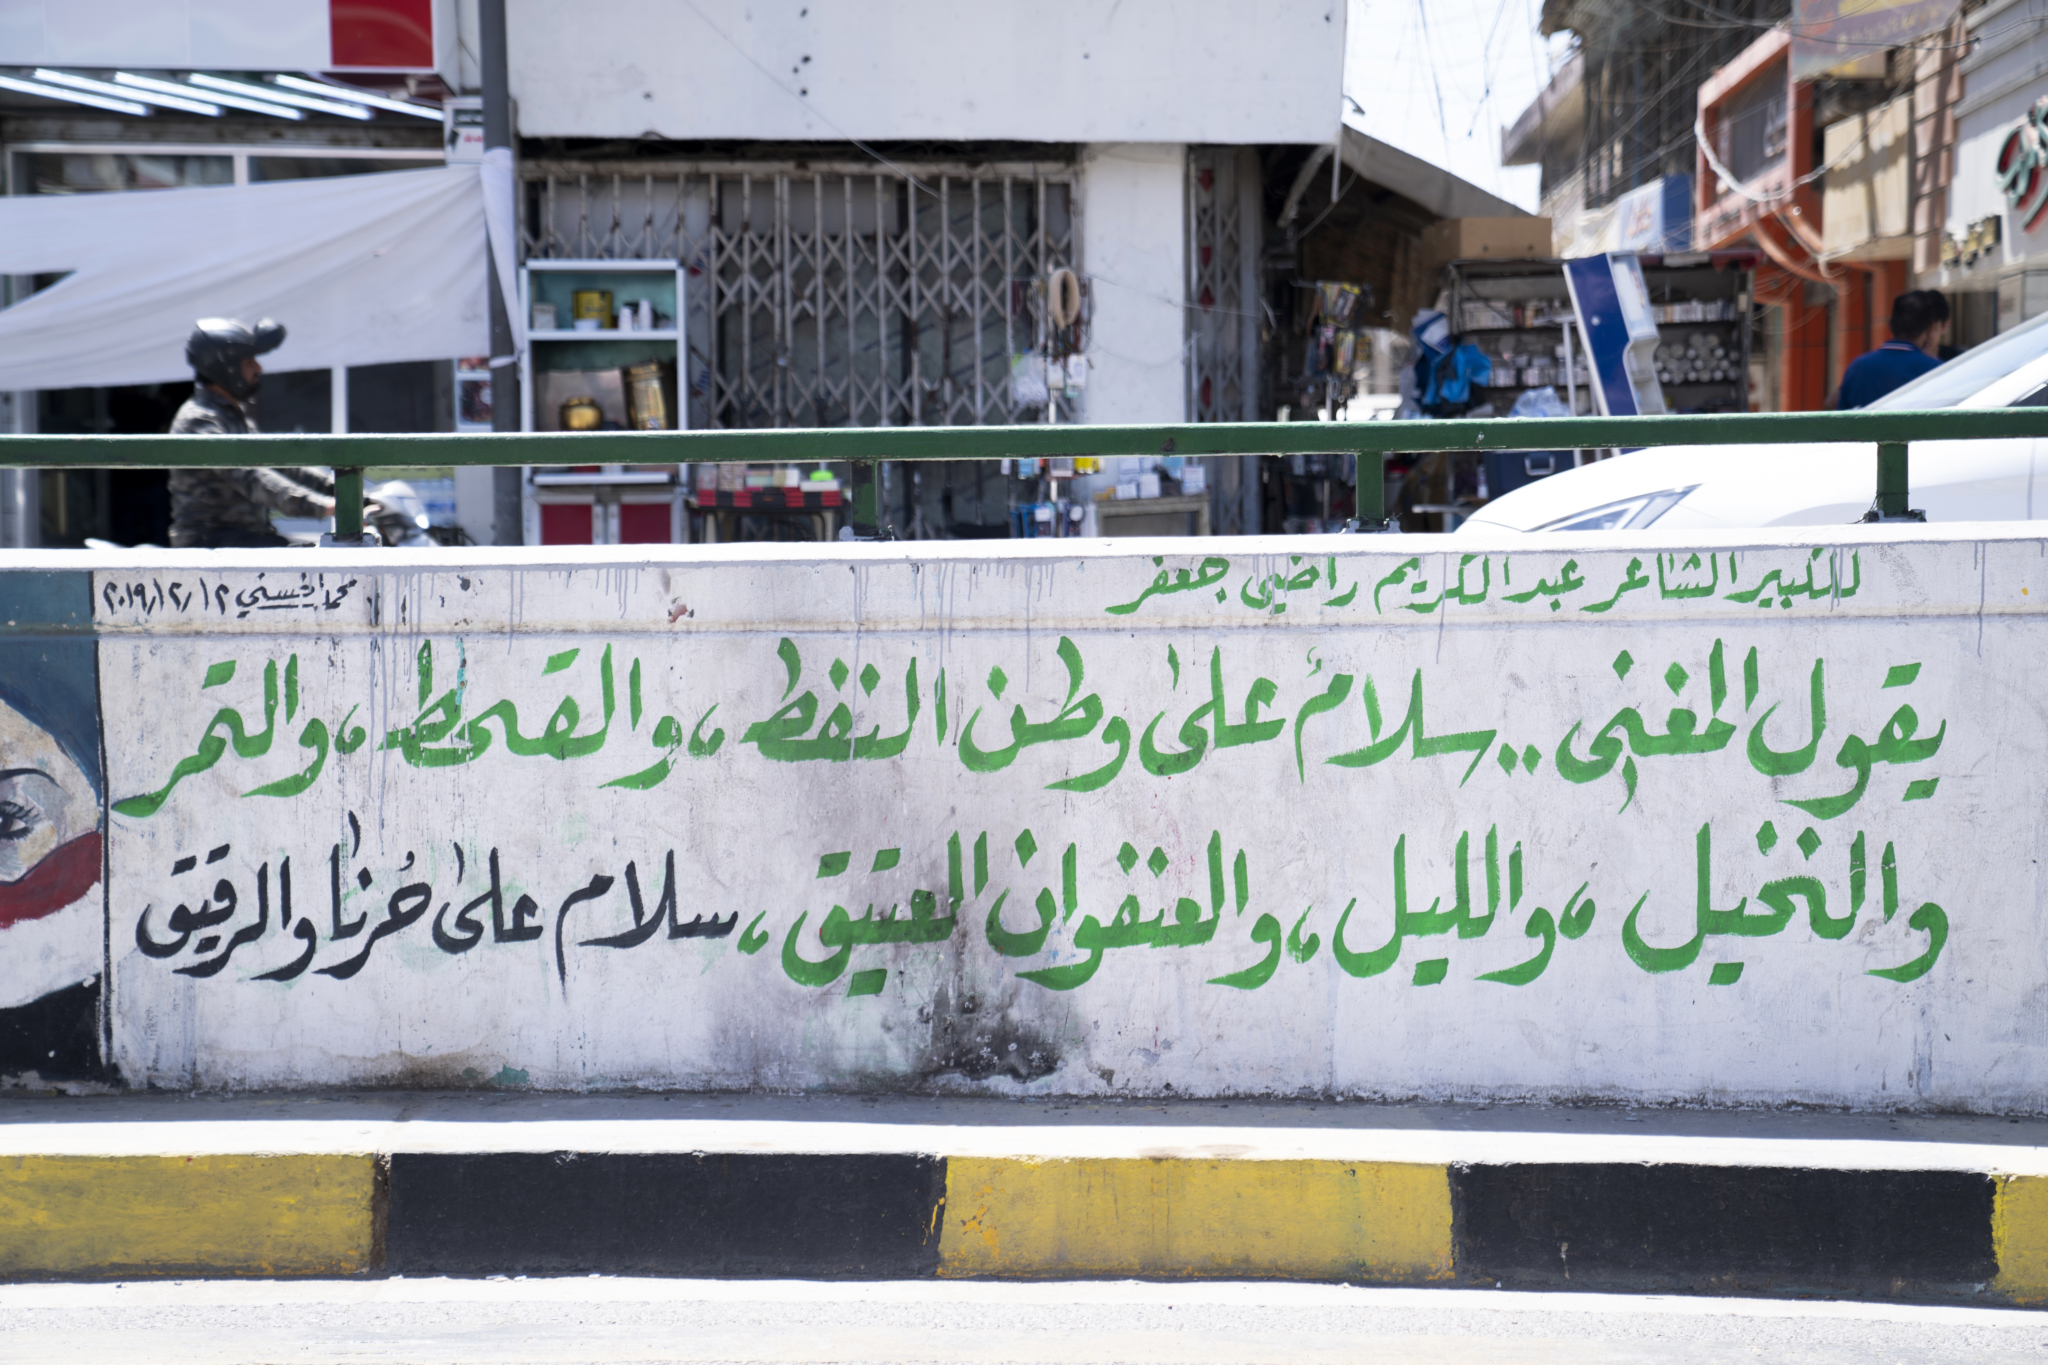 للكبير الشاعر عبد الكريم راضي جعفر
محمد الحسني ٢٠١٩/١٢/١٢
يقول المغني .. سلامٌ على وطن النفط ، والقحط ، والتمر
والنخيل ، والليل ، والعنفوان العتيق ، سلام على حُزننا والرقيق